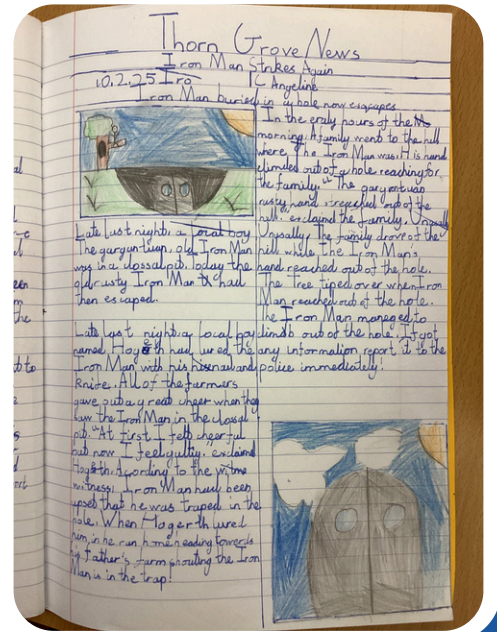 Thorn Grove News
Iron Man Strikes Again
10.2.25 Iro
C Angeline
Iron Man buried in a hole now escapes
Late last night, a local boy
The gargantuan, old, Iron Man
was in a clossal pit. Today the
old rusty Iron Man had
then escaped.
Late last night, a local boy
named Hogarth had lured the
Iron Man with his nail and
knife. All of the farmers
gave out a great cheer when they
saw the Iron Man in the clossal
pit. "At first I felt cheerful
but now I feel guilty" exclaimed
Hogarth. Acording to the
witness, Iron Man had been
upset that he was traped in the
hole. When Hogerth lured
him in he ran home heading towards
his father's farm shouting the Iron
Man is in the trap!
In the eraly hours of the
morning, A family went to the hill
where The Iron Man was. His hand
climbed out of a hole reaching for
the family. "The gargantuan
rusty hand streched out of the
hill" exclaimd the family. Unusally
Unusally. The family drove of the
hill while the Iron Man's
hand reached out of the hole.
The Tree tiped over when Iron
Man reached out of the hole.
The Iron Man managed to
climb out of the hole. If got
any information report it to the
police immediately!